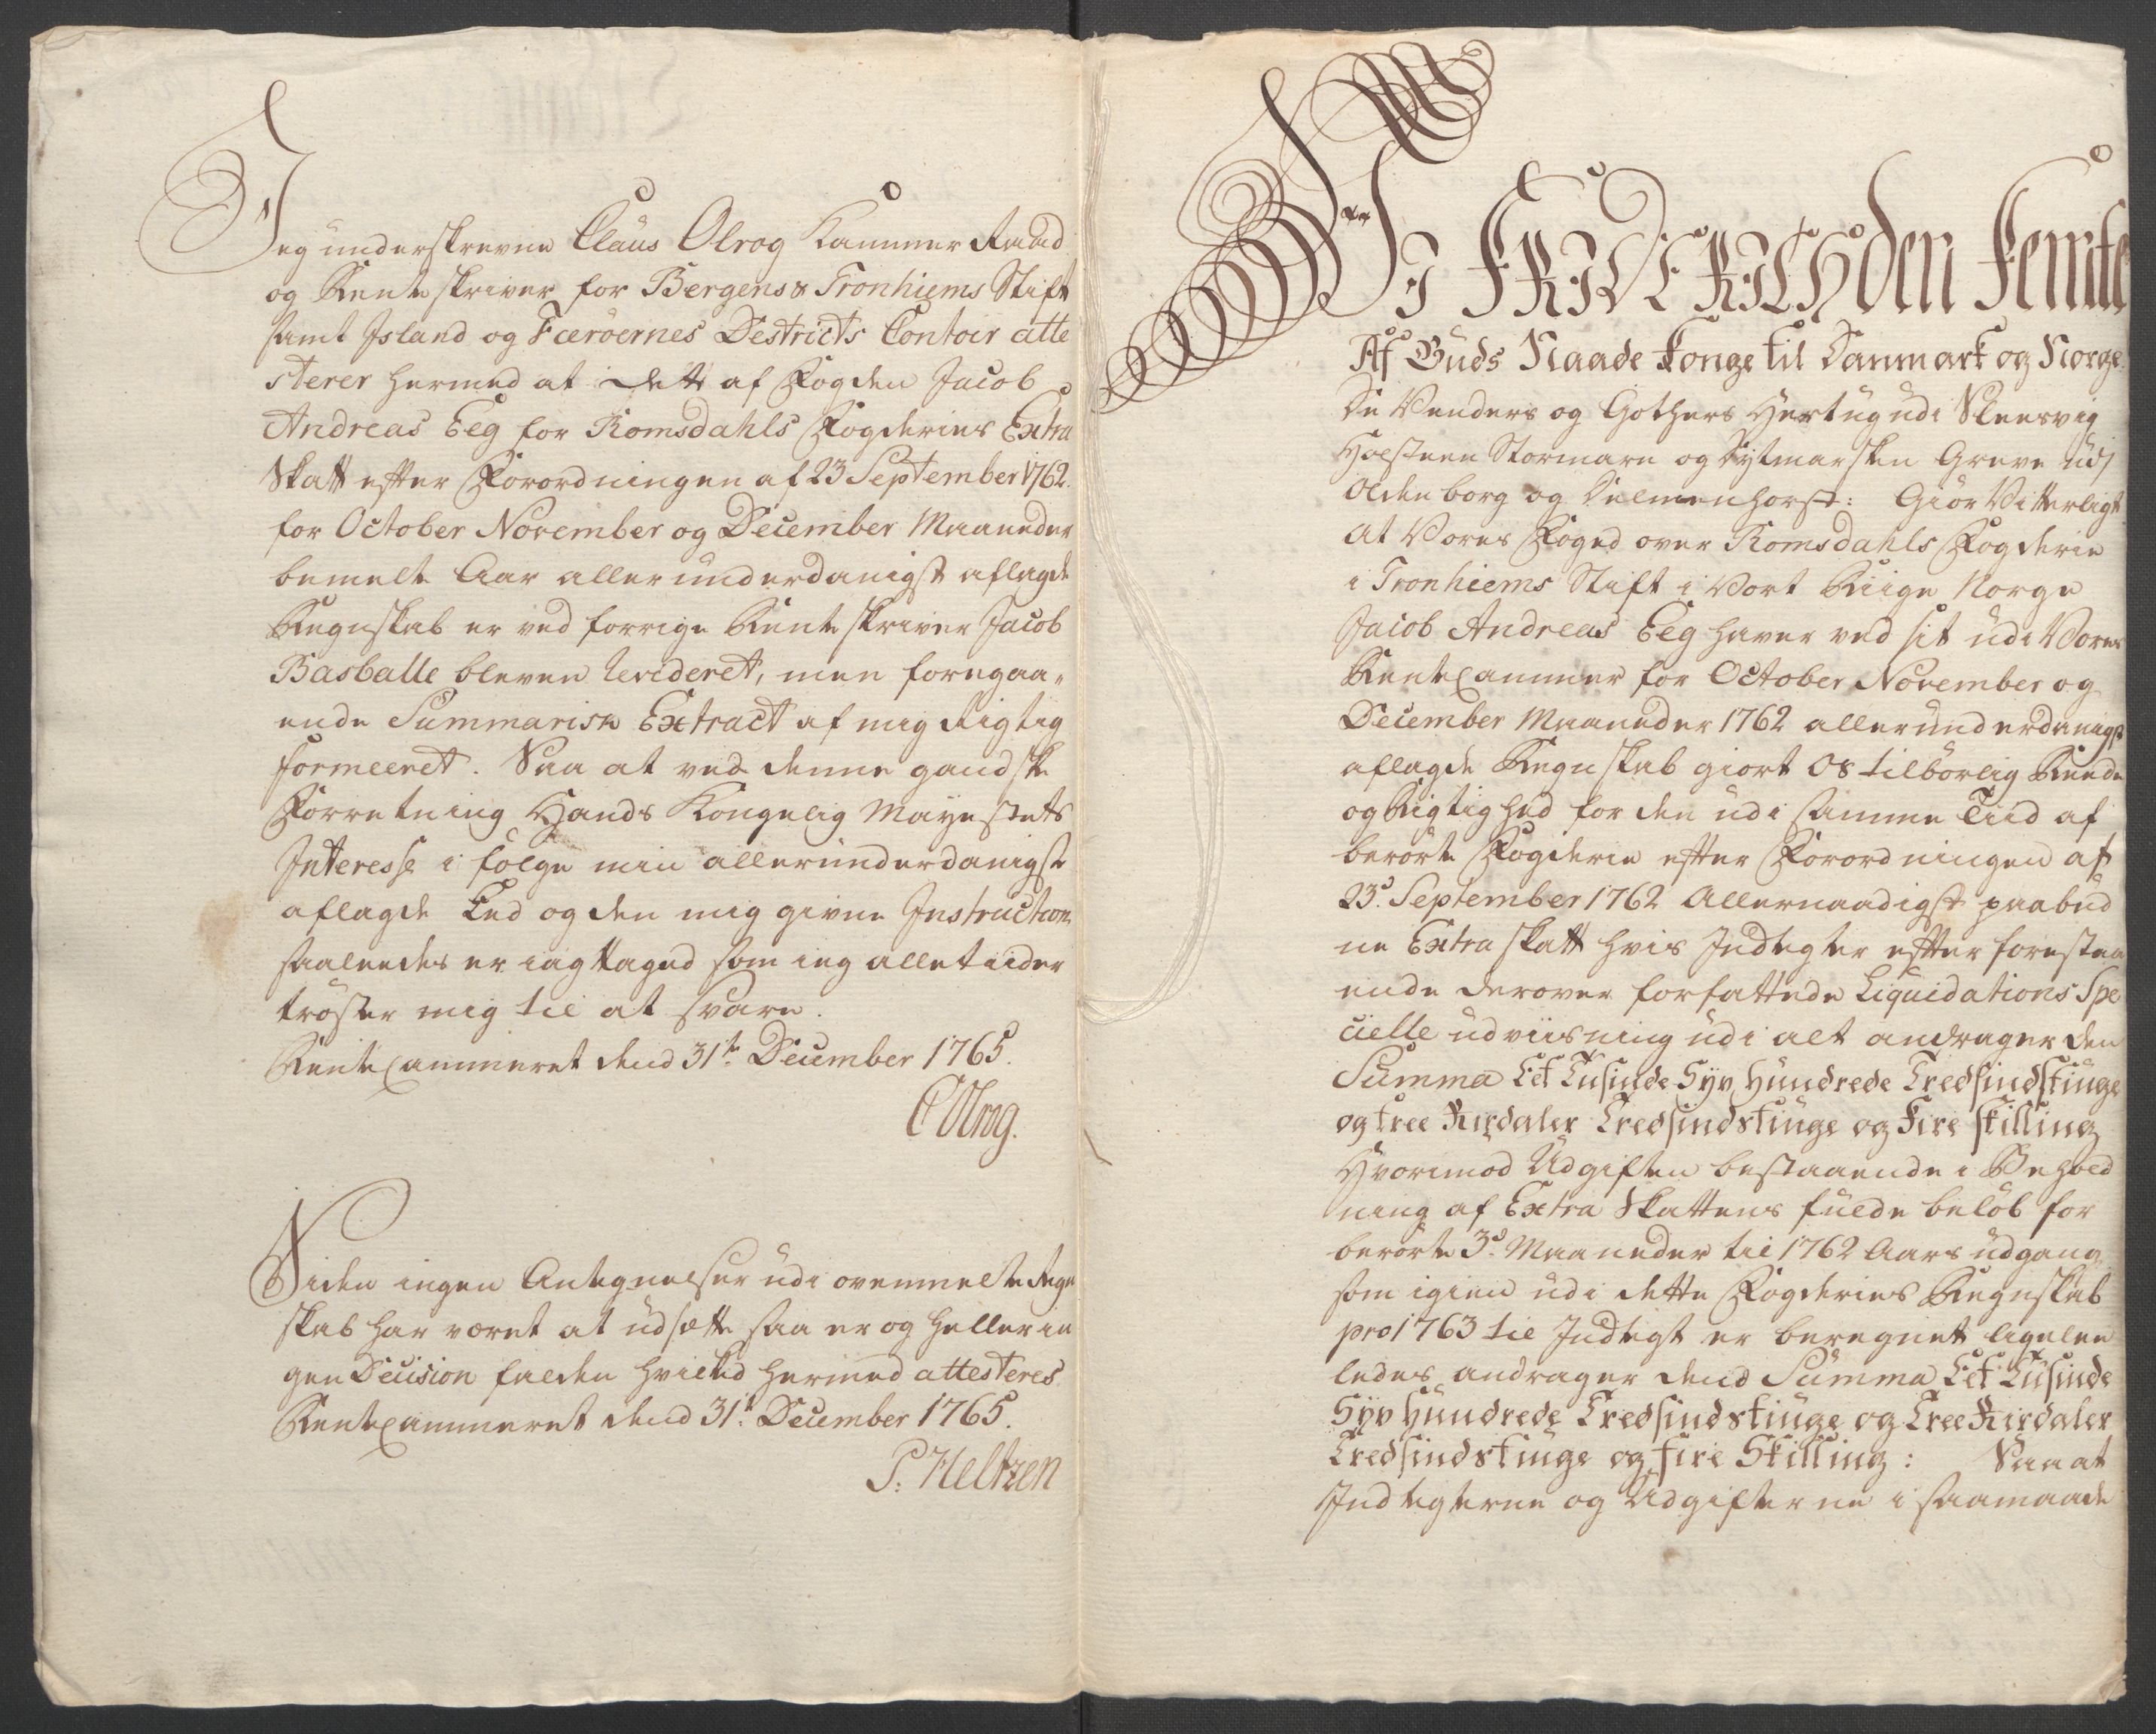 Jeg underskrevne Claus Olrog Kammer Raad
og Renteskriver for Bergens & Tronhiems Stift
samt Island og Færöernes Destricts Contoir atte
sterer hermed at dette af Fogden Jacob
Andreas Eeg for Romsdahls Fogderies Extra
Skatt efter Forordningen af 23 September 1762.
for October November og December Maaneder
bemelte Aar allerunderdanigst aflagde
Regnskab er ved forrige Renteskriver Jacob
Basballe bleven Revideret, men foregaa-
ende Summarisk Extract af mig Rigtig
formeeret. Saa at ved denne gandske
Forretning Hands Kongelig Mayestets
Interesse i følge min allerunderdanigst
aflagde Eed og den mig givne Instruction
saaleedes er iagttaged som ieg alletiider
trøster mig til at svare.
RenteCammeret dend 31te December 1765.
COlrog.
Siden ingen Antegnelser udi ovenmelte Regn
skab har været at udsette saa er og heller in
gen Decision falden hvilket hermed attesteres
RenteCammeret dend 31t December 1765.
P. Heltzen
Vi FRIDERICH den Femte
Af Guds Naade Konge til Danmark og Norge
De Venders og Gothers Hertug udi Sleesvig
Holsteen Stormarn og Dytmarsken Greve udj
Oldenborg og Delmenhorst: Giør Vitterligt
At Vores Foged over Romsdahls Fogderie
i Tronhiems Stift i Vort Riige Norge
Jacob Andreas Eeg haver ved sit udi Vores
RenteCammer for October November og
December Maaneder 1762 allerunderdanigst
aflagde Regnskab giort Os tilbørlig Reede
og Rigtighed for den udi samme Tiid af
berørte Fogderie efter Forordningen af
23d. September 1762 Allernaadigst paabud
ne Extra skatt hvis Indtegter efter forestaa
ende derover forfattede Liquidations Spe
cielle udviisning udi alt andrager den
Summa Eet Tusinde Syv Hundrede Tredsindstiuge
og tree Rixdaler Tredsindstiuge og Fire skilling
Hvorimod Udgiften bestaaende i Behold
ning af Extra Skattens fulde beløb for
berørte 3de Maaneder til 1762 Aars udgang
som igien udi dette Fogderies Regnskab
pro 1763 til Indtegt er beregnet ligelee
ledes andrager dend Summa Eet Tusinde
Syv Hundrede Tredsindstiuge og Tree Rixdaler
Tredsindstiuge og fire Skilling: Saa at
Indtegterne og Udgifterne i saamaade